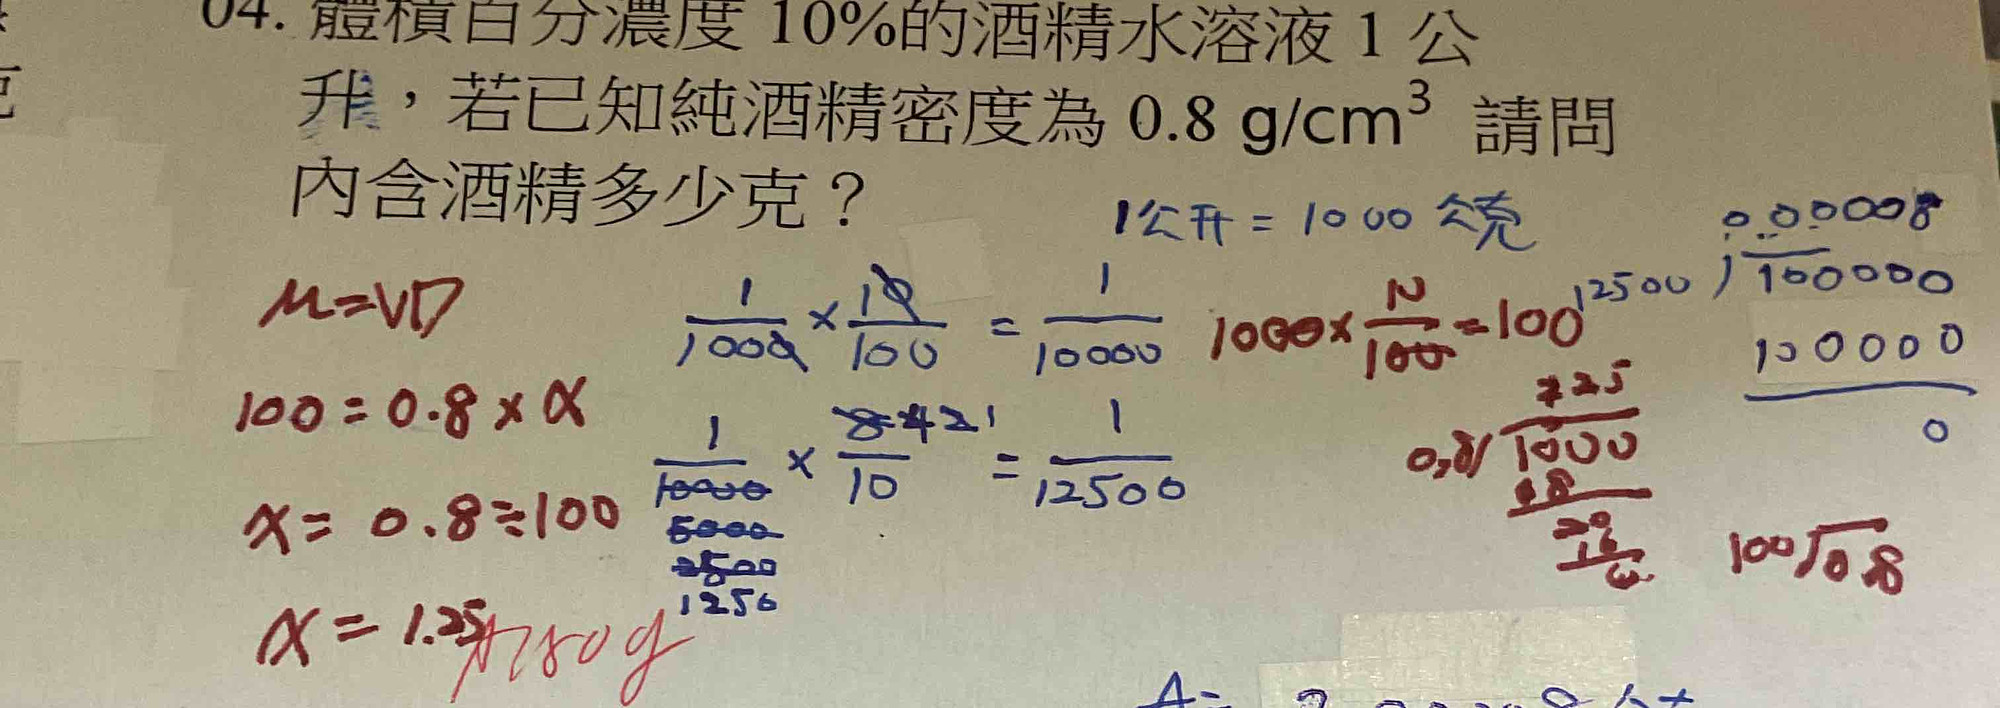 04. 體積百分濃度 10%的酒精水溶液 1 公
升，若已知純酒精密度為 0.8 g/cm³ 請問
內含酒精多少克？
1公升 = 1000 公克
M=VD
1/1000 × 10/100 = 1/10000
1000 × 10/100 = 100
0.00008
12500 ) 100000
100000
0
100 = 0.8 × x
1/10000 × 8 4 2 1/10 = 1/12500
5000
2500
1250
0.8 ) 1000
x = 0.8 ÷ 100
100 ) 0.8
x = 1.25
A:80g